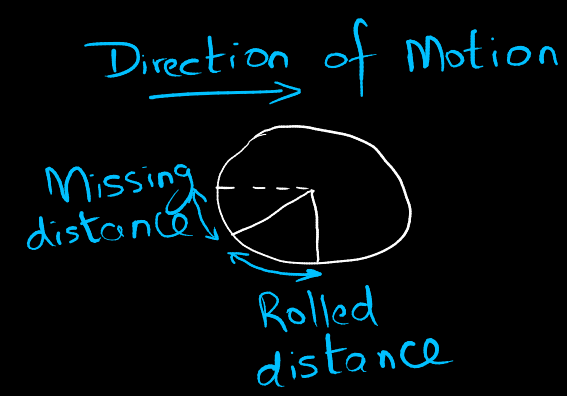 Direction of Motion
Missing
distance
Rolled
distance